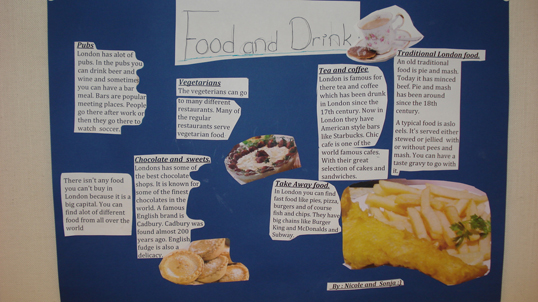 Food and Drink
Pubs
London has alot of
pubs. In the pubs you
can drink beer and
wine and sometimes
you can have a bar
meal. Bars are popular
meeting places. People
go there after work or
then they go there to
watch soccer.
Vegetarians
The vegeterians can go
to many different
restaurants. Many of
the regular
restaurants serve
vegetarian food
Tea and coffee
London is famous for
there tea and coffee
which has been drunk
in London since the
17th century. Now in
London they have
American style bars
like Starbucks. Chic
cafe is one of the
world famous cafes.
With their great
selection of cakes and
sandwiches.
Traditional London food.
An old traditional
food is pie and mash.
Today it has minced
beef. Pie and mash
has been around
since the 18th
century.
A typical food is aslo
eels. It's served either
stewed or jellied with
or without peas and
mash. You can have a
taste gravy to go with
it.
There isn't any food
you can't buy in
London because it is a
big capital. You can
find alot of different
food from all over the
world
Chocolate and sweets.
Londons has some of
the best chocolate
shops. It is known for
some of the finest
chocolates in the
world. A famous
English brand is
Cadbury. Cadbury was
found almost 200
years ago. English
fudge is also a
delicacy.
Take Away food.
In London you can find
fast food like pies, pizza,
burgers and of course
fish and chips. They have
big chains like Burger
King and McDonalds and
Subway.
By : Nicole and Sonja :)